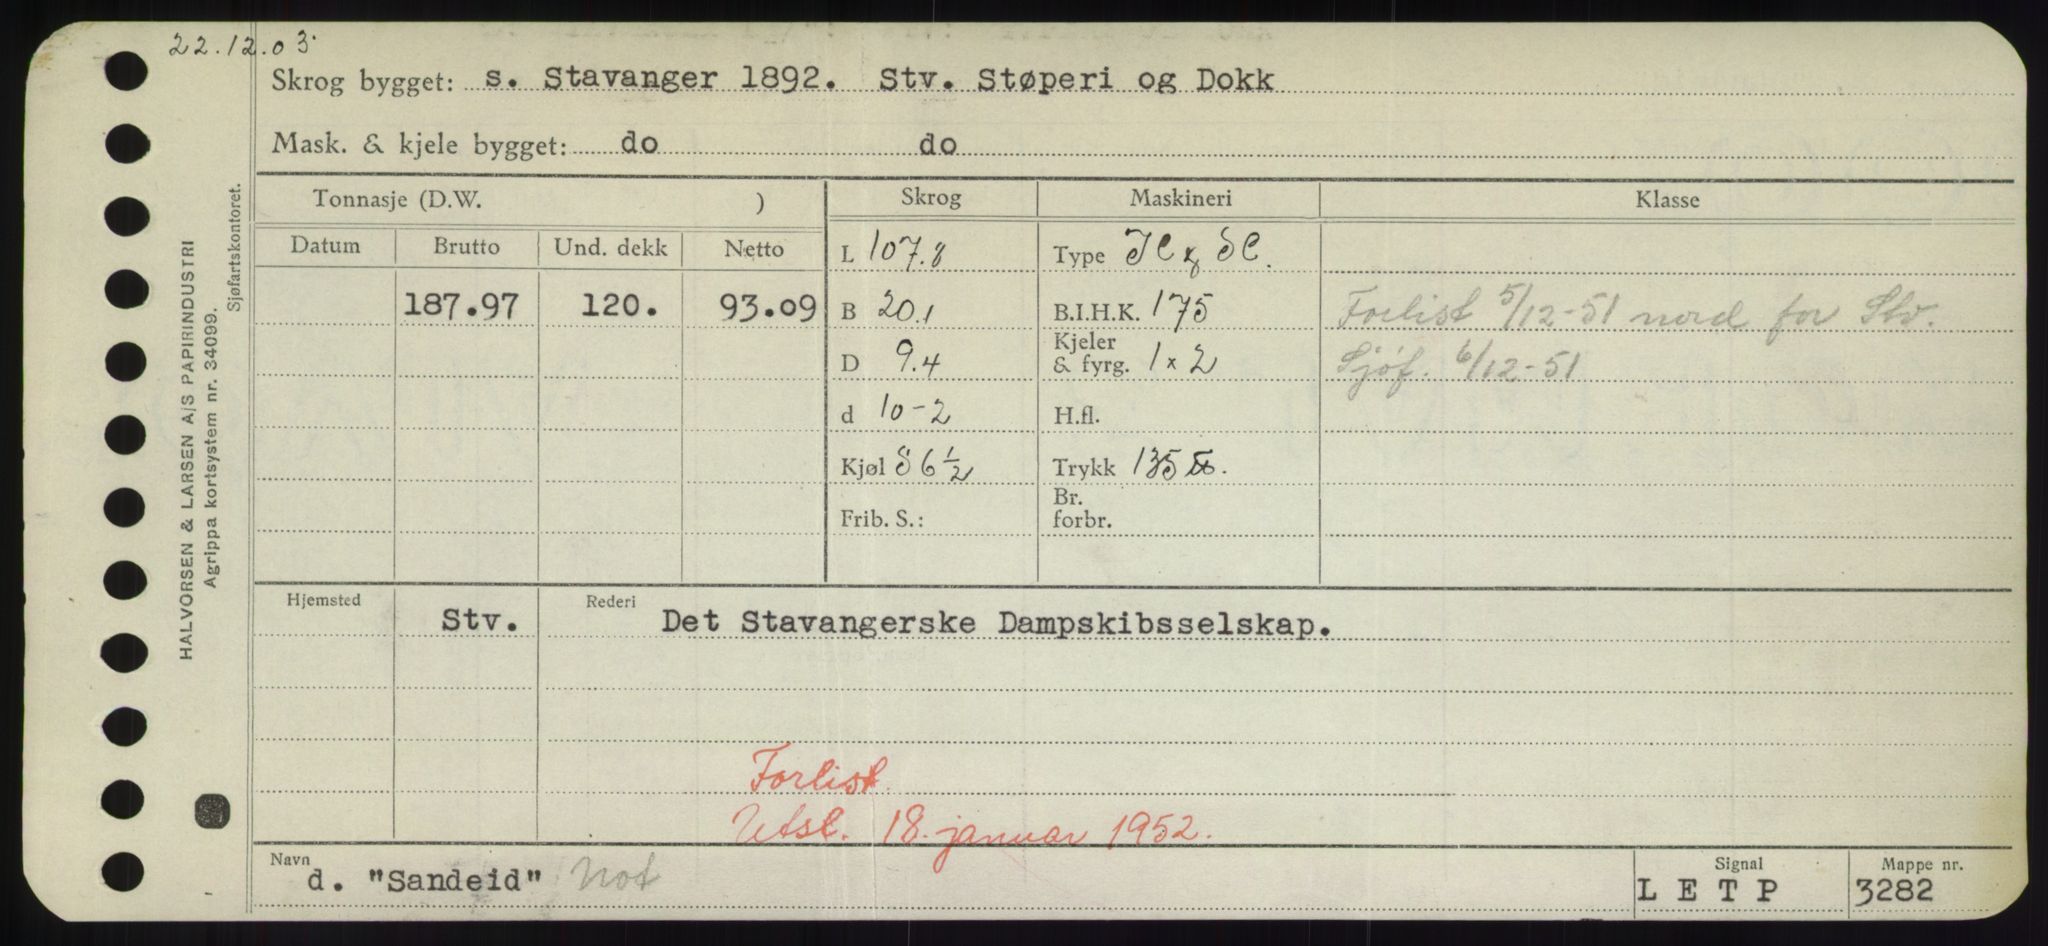 22.12.03
Skrog bygget: s. Stavanger 1892. Stv. Støperi og Dokk
Mask. & kjele bygget: do do
Tonnasje (D.W. ) Skrog Maskineri Klasse
Datum Brutto Und. dekk Netto L 107.8 Type
187.97 120. 93.09 B 20.1 B.I.H.K. 175 Forlist 5/12-51 nord for Stv.
D 9.4 Kjeler & fyrg. 1 x 2 Sjøf. 6/12-51
d 10-2 H.fl.
Kjøl S 6 1/2 Trykk 135 lb.
Frib. S.: Br. forbr.
Hjemsted Stv. Rederi Det Stavangerske Dampskibsselskap.
Forlist.
Utsl. 18. januar 1952.
Navn d. "Sandeid" Not Signal L E T P Mappe nr. 3282
HALVORSEN & LARSEN A/S PAPIRINDUSTRI
Agrippa kortsystem nr. 34099.
Sjøfartskontoret.